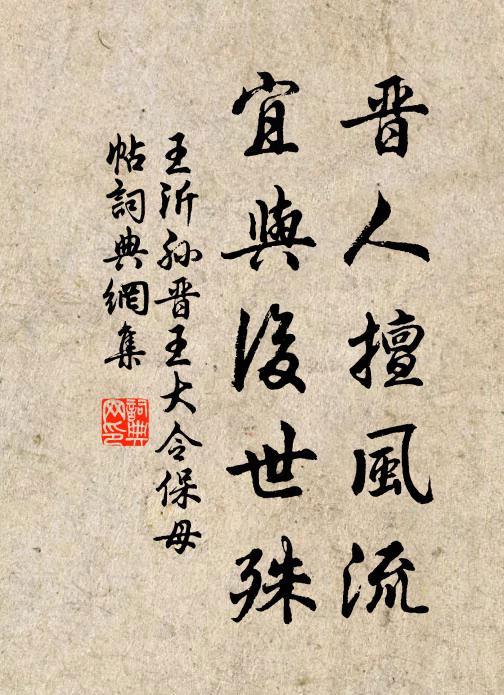 晋人擅風流
宜與後世殊
王沂孫晋王大令保母
帖詞典網集
詞典
网印